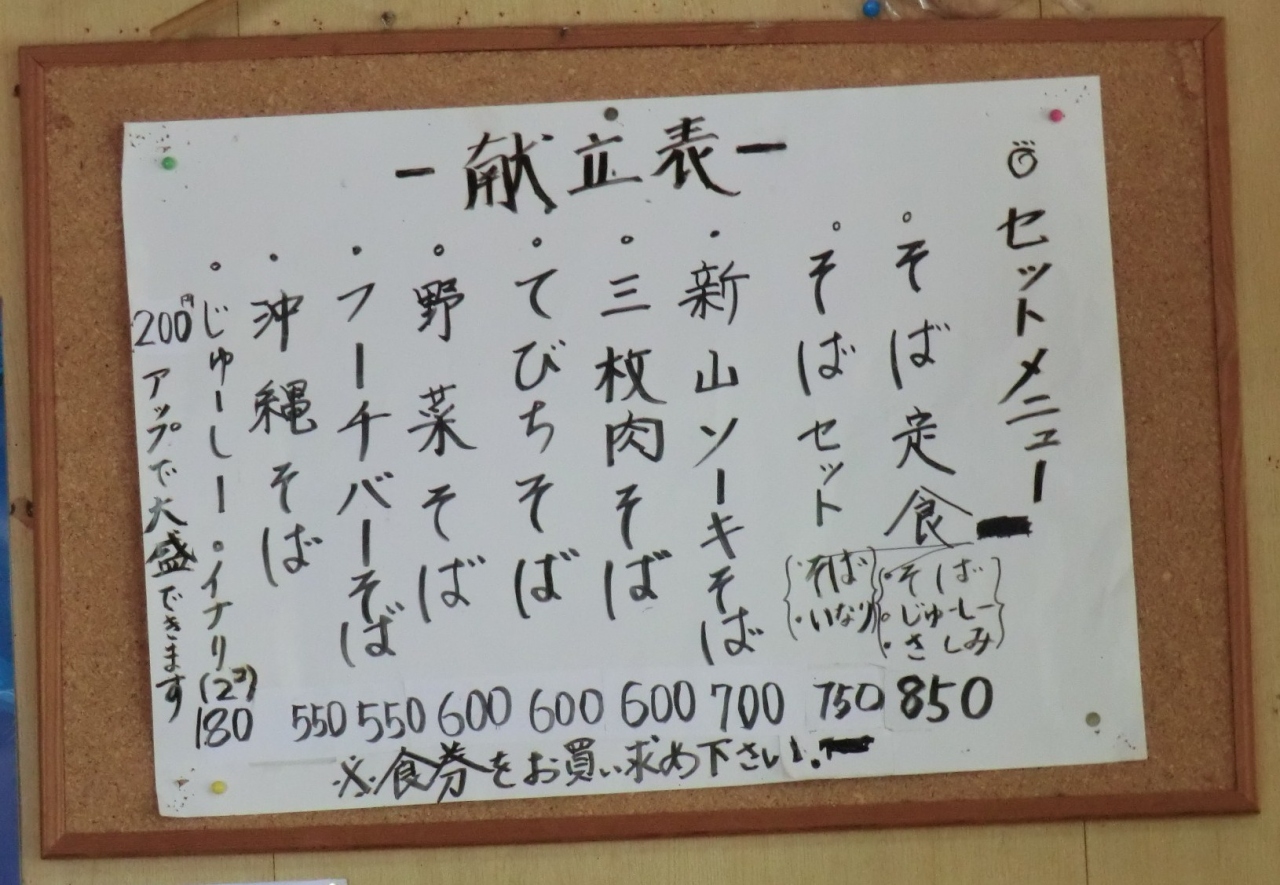 －献立表－
◎セットメニュー
。そば定食
{・そば
・じゅーしー
・さしみ}
850
。そばセット
{・そば
・いなり}
750
・新山ソーキそば 700
。三枚肉そば 600
。てびちそば 600
。野菜そば 600
・フーチバーそば 550
・沖縄そば 550
。じゅーしー・イナリ(2コ) 180
200円アップで大盛できます
※食券をお買い求め下さい。